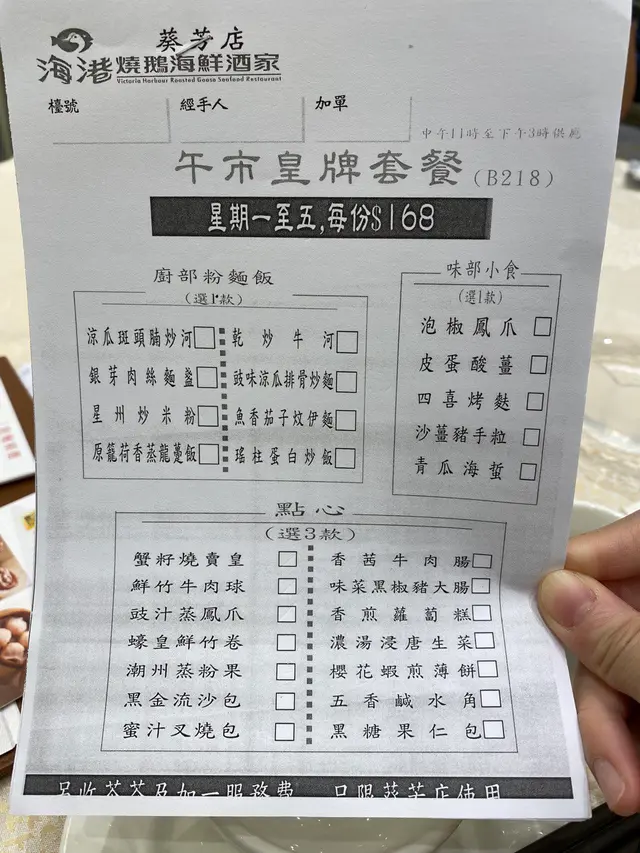 葵芳店
海港燒鵝海鮮酒家
Victoria Harbour Roasted Goose Seafood Restaurant
檯號 經手人 加單
中午11時至下午3時供應
午市皇牌套餐(B218)
星期一至五,每份$168
廚部粉麵飯
(選1款)
涼瓜斑頭腩炒河
銀芽肉絲麵盤
星州炒米粉
原籠荷香蒸龍躉飯
乾炒牛河
豉味涼瓜排骨炒麵
魚香茄子炆伊麵
瑤柱蛋白炒飯
味部小食
(選1款)
泡椒鳳爪
皮蛋酸薑
四喜烤麩
沙薑豬手粒
青瓜海蜇
點心
(選3款)
蟹籽燒賣皇
鮮竹牛肉球
豉汁蒸鳳爪
蠔皇鮮竹卷
潮州蒸粉果
黑金流沙包
蜜汁叉燒包
香茜牛肉腸
味菜黑椒豬大腸
香煎蘿蔔糕
濃湯浸唐生菜
櫻花蝦煎薄餅
五香鹹水角
黑糖果仁包
另收茶芥及加一服務費 只限葵芳店使用